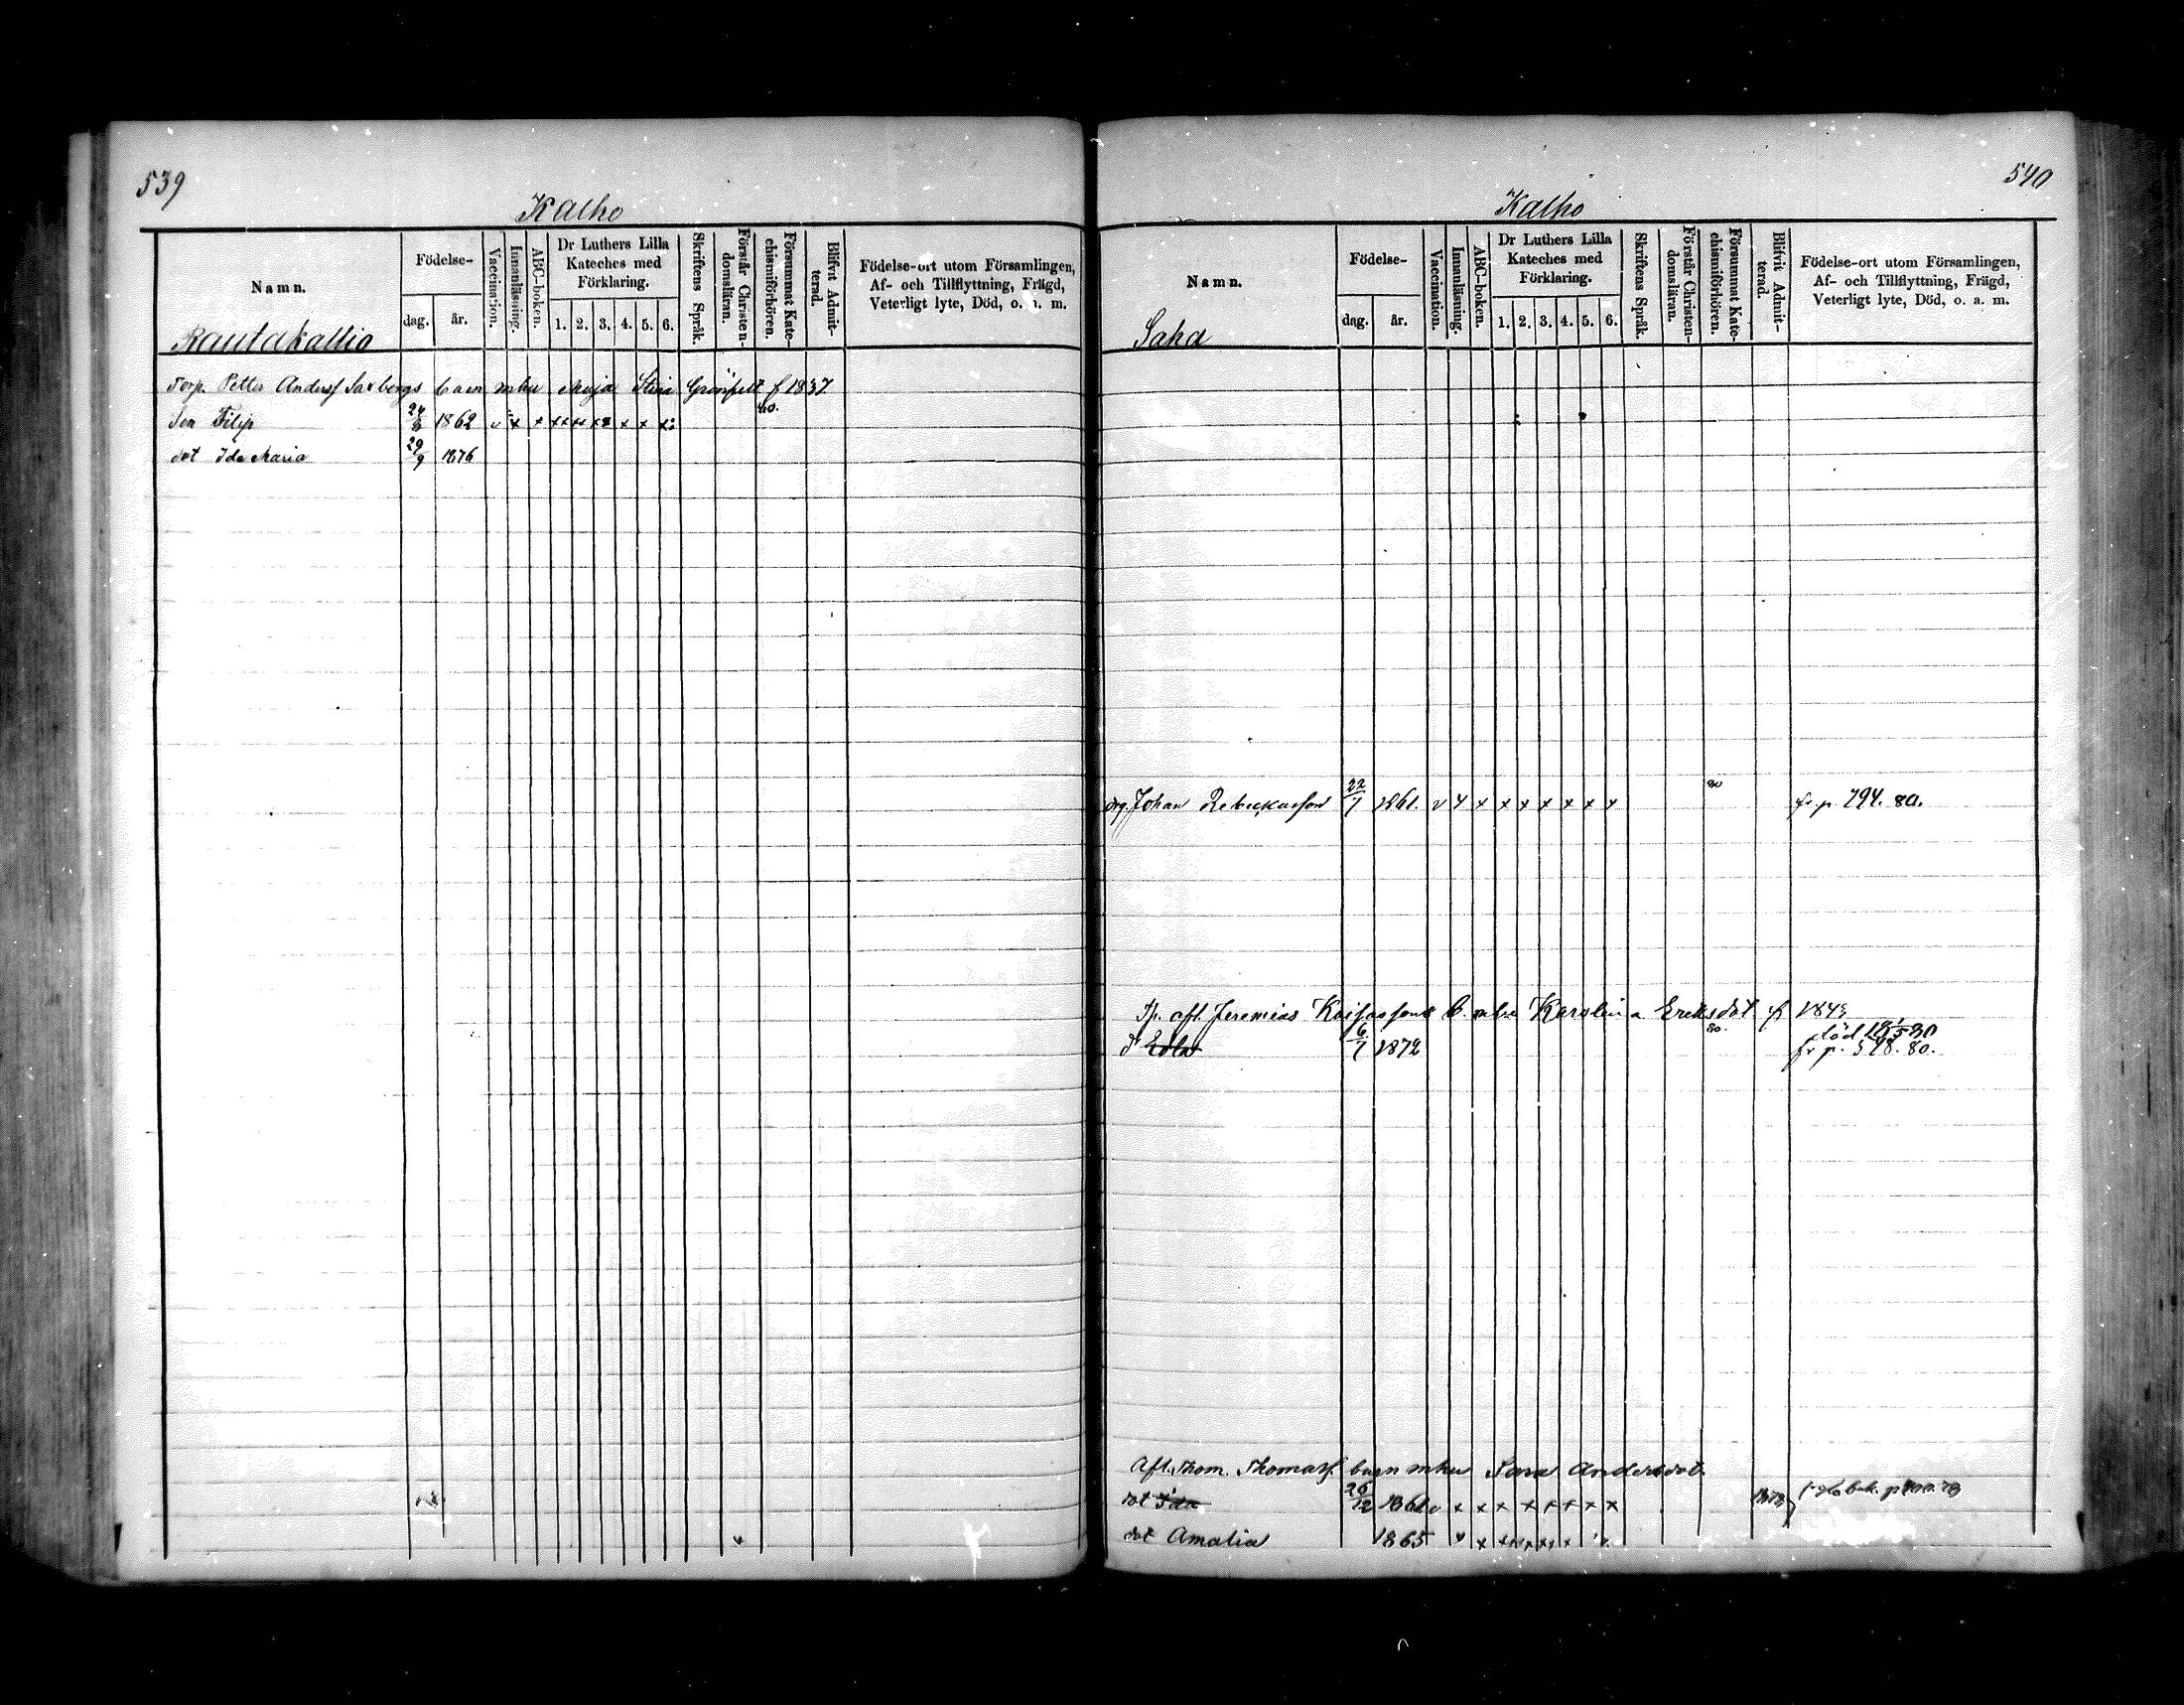 539
Kalho
Namn.
Födelse-
dag.
år.
Vaccination.
Innanläsning.
ABC-boken.
Dr Luthers Lilla Kateches med Förklaring.
1. 2. 3. 4. 5. 6.
Skriftens Språk.
Förstår Christendomsläran.
Försummat Katechismiförhören.
Blifvit Admitterad.
Födelse-ort utom Församlingen, Af- och Tillflyttning, Frägd, Veterligt lyte, Död, o. a. m.
Rautakallio
Torp. Petter Anderss Saxbergs barn mhu Maja Stina Grönfelt f 1837
Son Filip 24/3 1862 v x x x x x x x x 80.
dot Ida Maria 29/9 1876
540
Kalho
Namn.
Födelse-
dag.
år.
Vaccination.
Innanläsning.
ABC-boken.
Dr Luthers Lilla Kateches med Förklaring.
1. 2. 3. 4. 5. 6.
Skriftens Språk.
Förstår Christendomsläran.
Försummat Katechismiförhören.
Blifvit Admitterad.
Födelse-ort utom Församlingen, Af- och Tillflyttning, Frägd, Veterligt lyte, Död, o. a. m.
Saha
drg. Johan Rebeckasson 22/7 1861. v x x x x x x x x 80 fr p. 794. 80.
Tp. afl. Jeremias Kaisassons b. mhu Karolina Eriksdot f 1843
d Edla 6/7 1872 80. död 80
fr p. 578. 80.
Afl. Thom. Thomass. barn mhu Sara Andersdot.
dot Ida 26/12 1861 v x x x x x x x x
dot Amalia 1865 v x x x x x x